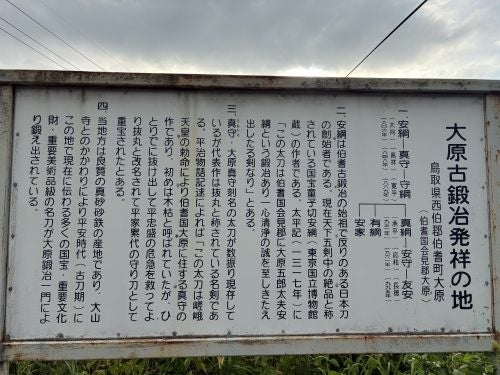 大原古鍛冶発祥の地
鳥取県西伯郡伯耆町大原
(伯耆国会見郡大原)
一 安綱―真守―守綱
真綱―安守―友安
有綱
安家
二 安綱は伯耆古鍛冶の始祖で反りのある日本刀
の創始者である。現在天下五剣中の絶品と称
されている国宝童子切安綱(東京国立博物館
蔵)の作者である。太平記(一三七一年)に
「この太刀は伯耆国会見郡に大原五郎太夫安
綱という鍛冶あり一心清浄の誠を至しきたえ
出したる剣なり」とある。
三 真守・大原真守刻名の太刀が数振り現存して
いるが代表作は抜丸と称されている名剣であ
る。平治物語記述によれば「この太刀は嵯峨
天皇の勅命により伯耆国大原に住する真守の
作であり、初めは木枯と呼ばれていたが、ひ
とりでに抜け出して平忠盛の危急を救ってよ
り抜丸と改名されて平家累代の守り刀として
重宝されたとある。
四 当地方は良質の真砂砂鉄の産地であり、大山
寺とのかかわりにより平安時代(古刀期)に
この地で現在に伝わる多くの国宝・重要文化
財・重要美術品級の名刀が大原鍛冶一門によ
り鍛え出されている。